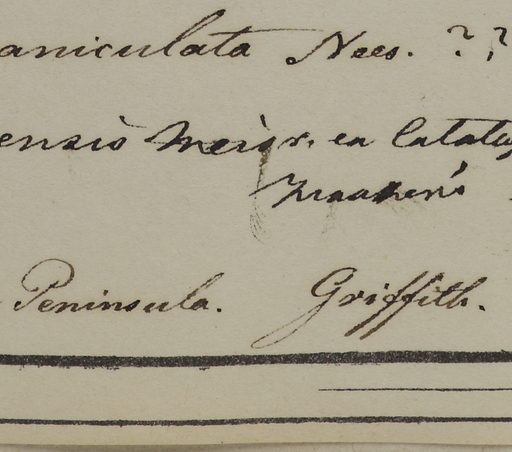 aniculata Nees. ??
ensis Meisn. ex Catalog
Peninsula. Griffith.